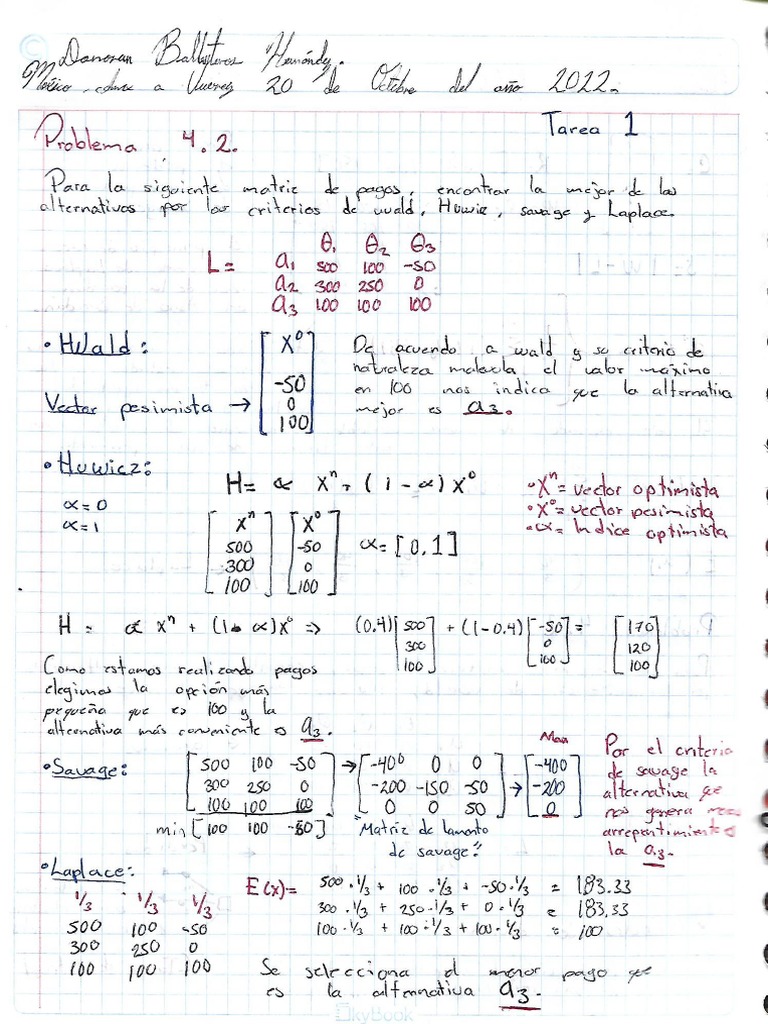 Donovan Ballesteros Hernández.
México, cdmx a Jueves 20 de Octubre del año 2022.
Tarea 1
Problema 4.2.
Para la siguiente matriz de pagos, encontrar la mejor de las
alternativas por los criterios de wald, Huwiz, savage y Laplace.
θ1 θ2 θ3
L= a1 500 100 -50
a2 300 250 0
a3 100 100 100
• Wald:
Vector pesimista → [X⁰ -50 0 100]
De acuerdo a wald y su criterio de
naturaleza malevola el valor máximo
en 100 nos indica que la alternativa
mejor es a3.
• Huwicz:
α=0
α=1
H= α Xⁿ + (1-α) X⁰
[Xⁿ 500 300 100] [X⁰ -50 0 100] α=[0,1]
• Xⁿ= vector optimista
• X⁰= vector pesimista
• α= Indice optimista
H = α Xⁿ + (1-α)X⁰ => (0.4)[500 300 100] + (1-0.4)[-50 0 100] = [170 120 100]
Como estamos realizando pagos
elegimos la opción más
pequeña que es 100 y la
alternativa más conveniente es a3.
• Savage:
[500 100 -50] → [-400 0 0] Max [-400]
[300 250 0] [-200 -150 -50] → [-200]
[100 100 100] [0 0 50] [0]
min [100 100 -50]
"Matriz de lamento
de savage"
Por el criterio
de savage la
alternativa que
nos genera
arrepentimiento
la a3.
• Laplace:
1/3 1/3 1/3
500 100 -50
300 250 0
100 100 100
E(x)= 500·1/3 + 100·1/3 + -50·1/3 = 183.33
300·1/3 + 250·1/3 + 0·1/3 = 183.33
100·1/3 + 100·1/3 + 100·1/3 = 100
Se selecciona el menor pago que
es la alternativa a3.
SkyBook